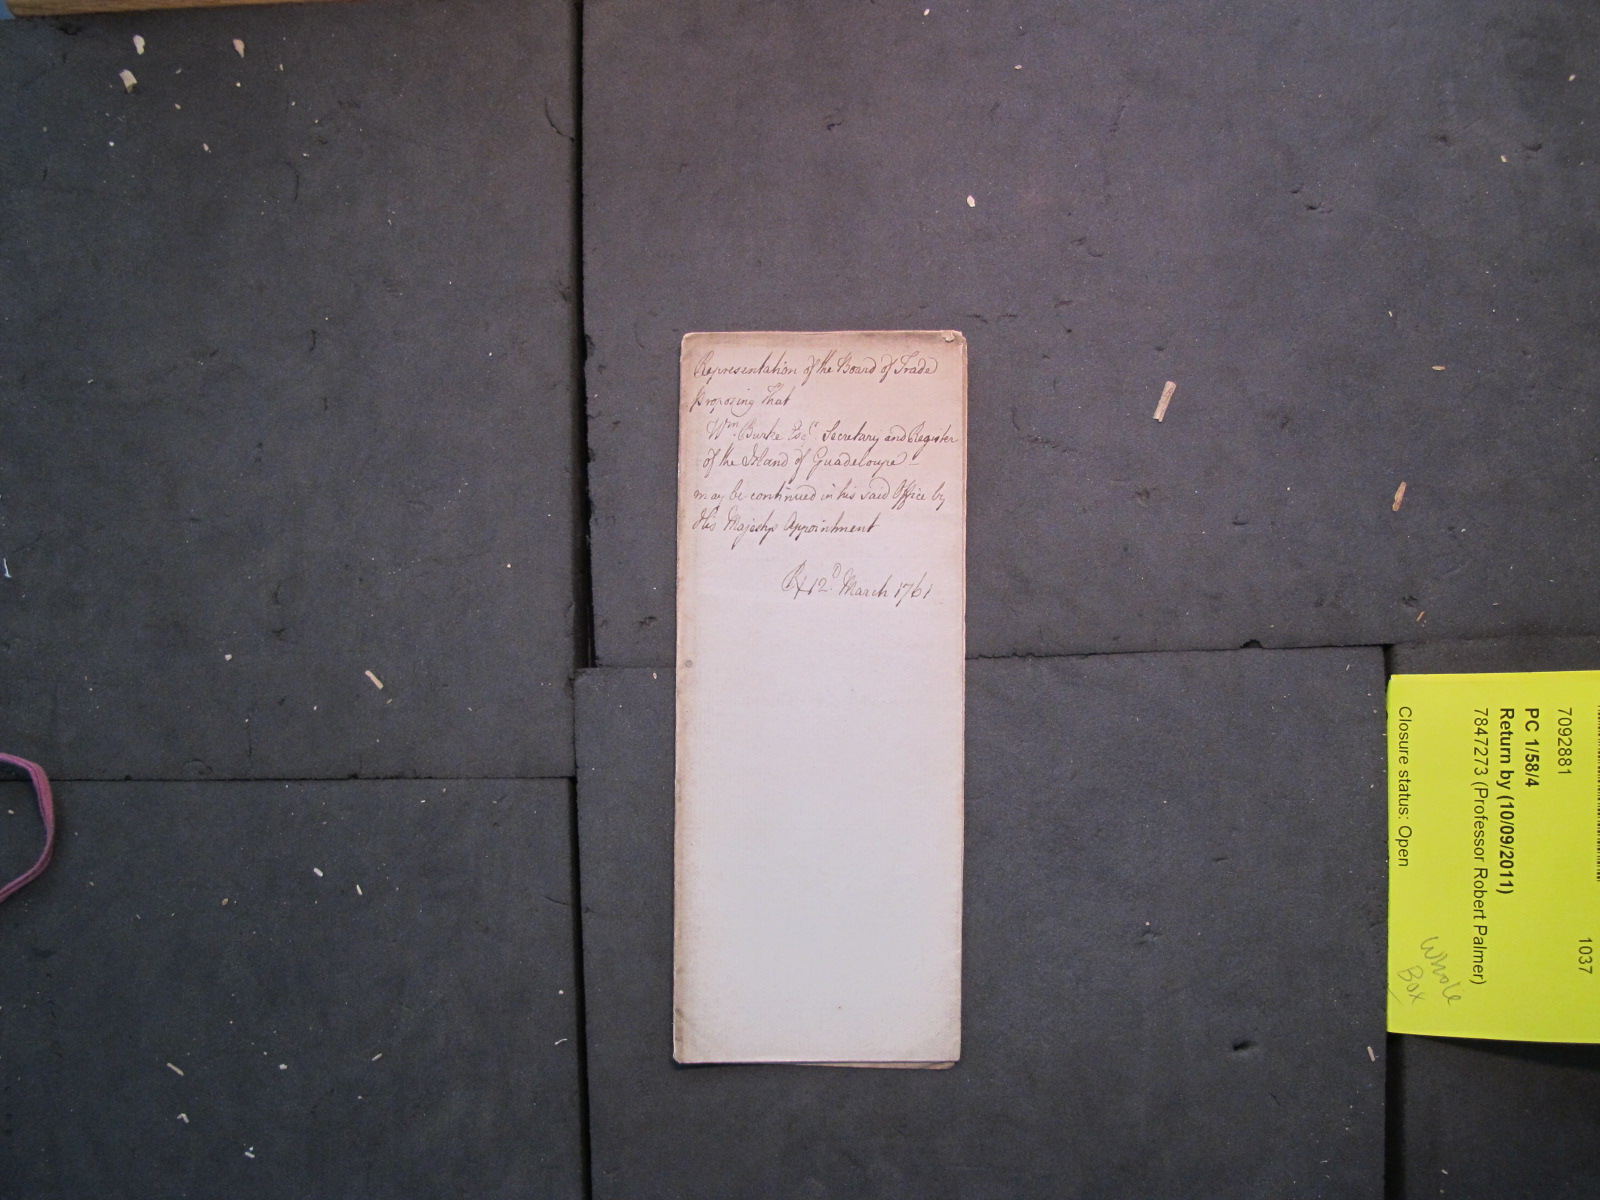 Representation of the Board of Trade
proposing that
Wm. Burke Esqr. Secretary and Register
of the Island of Guadeloupe –
may be continued in his said Office by
His Majestys Appointment
Rx 12.D March 1761
1037
7092881
PC 1/58/4
Return by (10/09/2011)
7847273 (Professor Robert Palmer)
Closure status: Open
Whole
Box